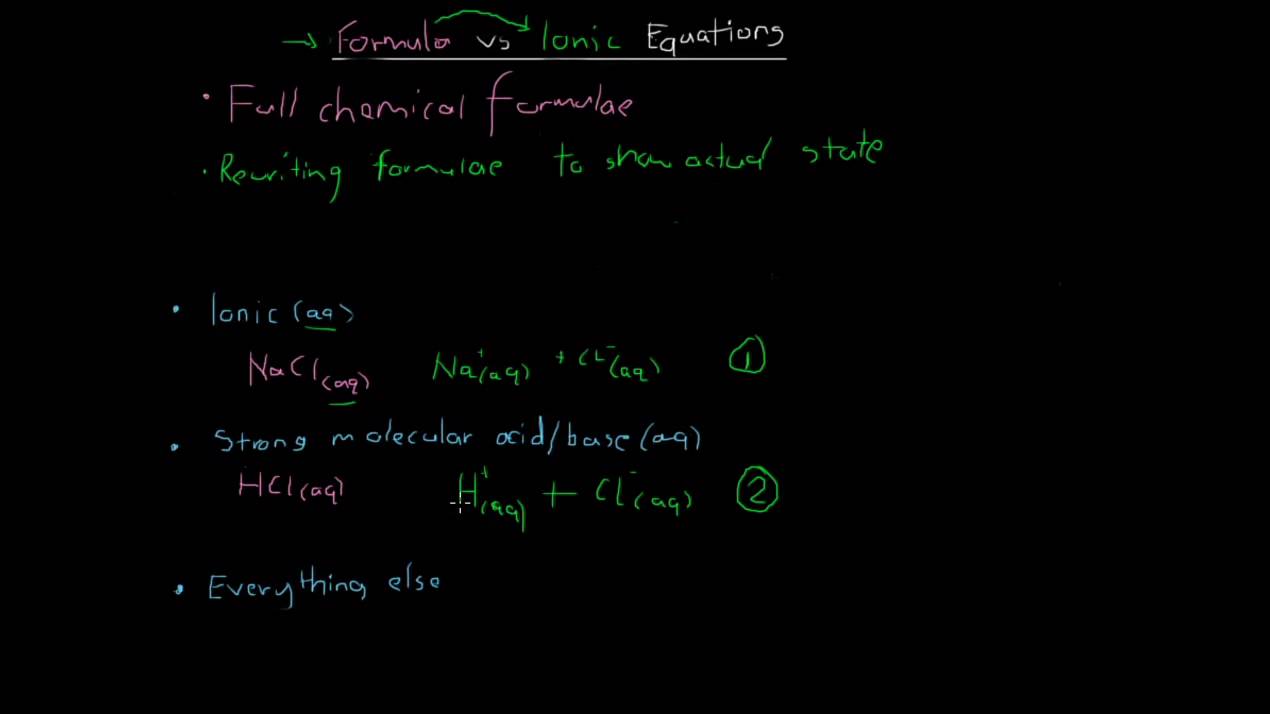 → Formula vs Ionic Equations
• Full chemical formulae
• Rewriting formulae to show actual state
• Ionic (aq)
NaCl(aq) Na⁺(aq) + Cl⁻(aq) ①
• Strong molecular acid/base (aq)
HCl(aq) H⁺(aq) + Cl⁻(aq) ②
• Everything else